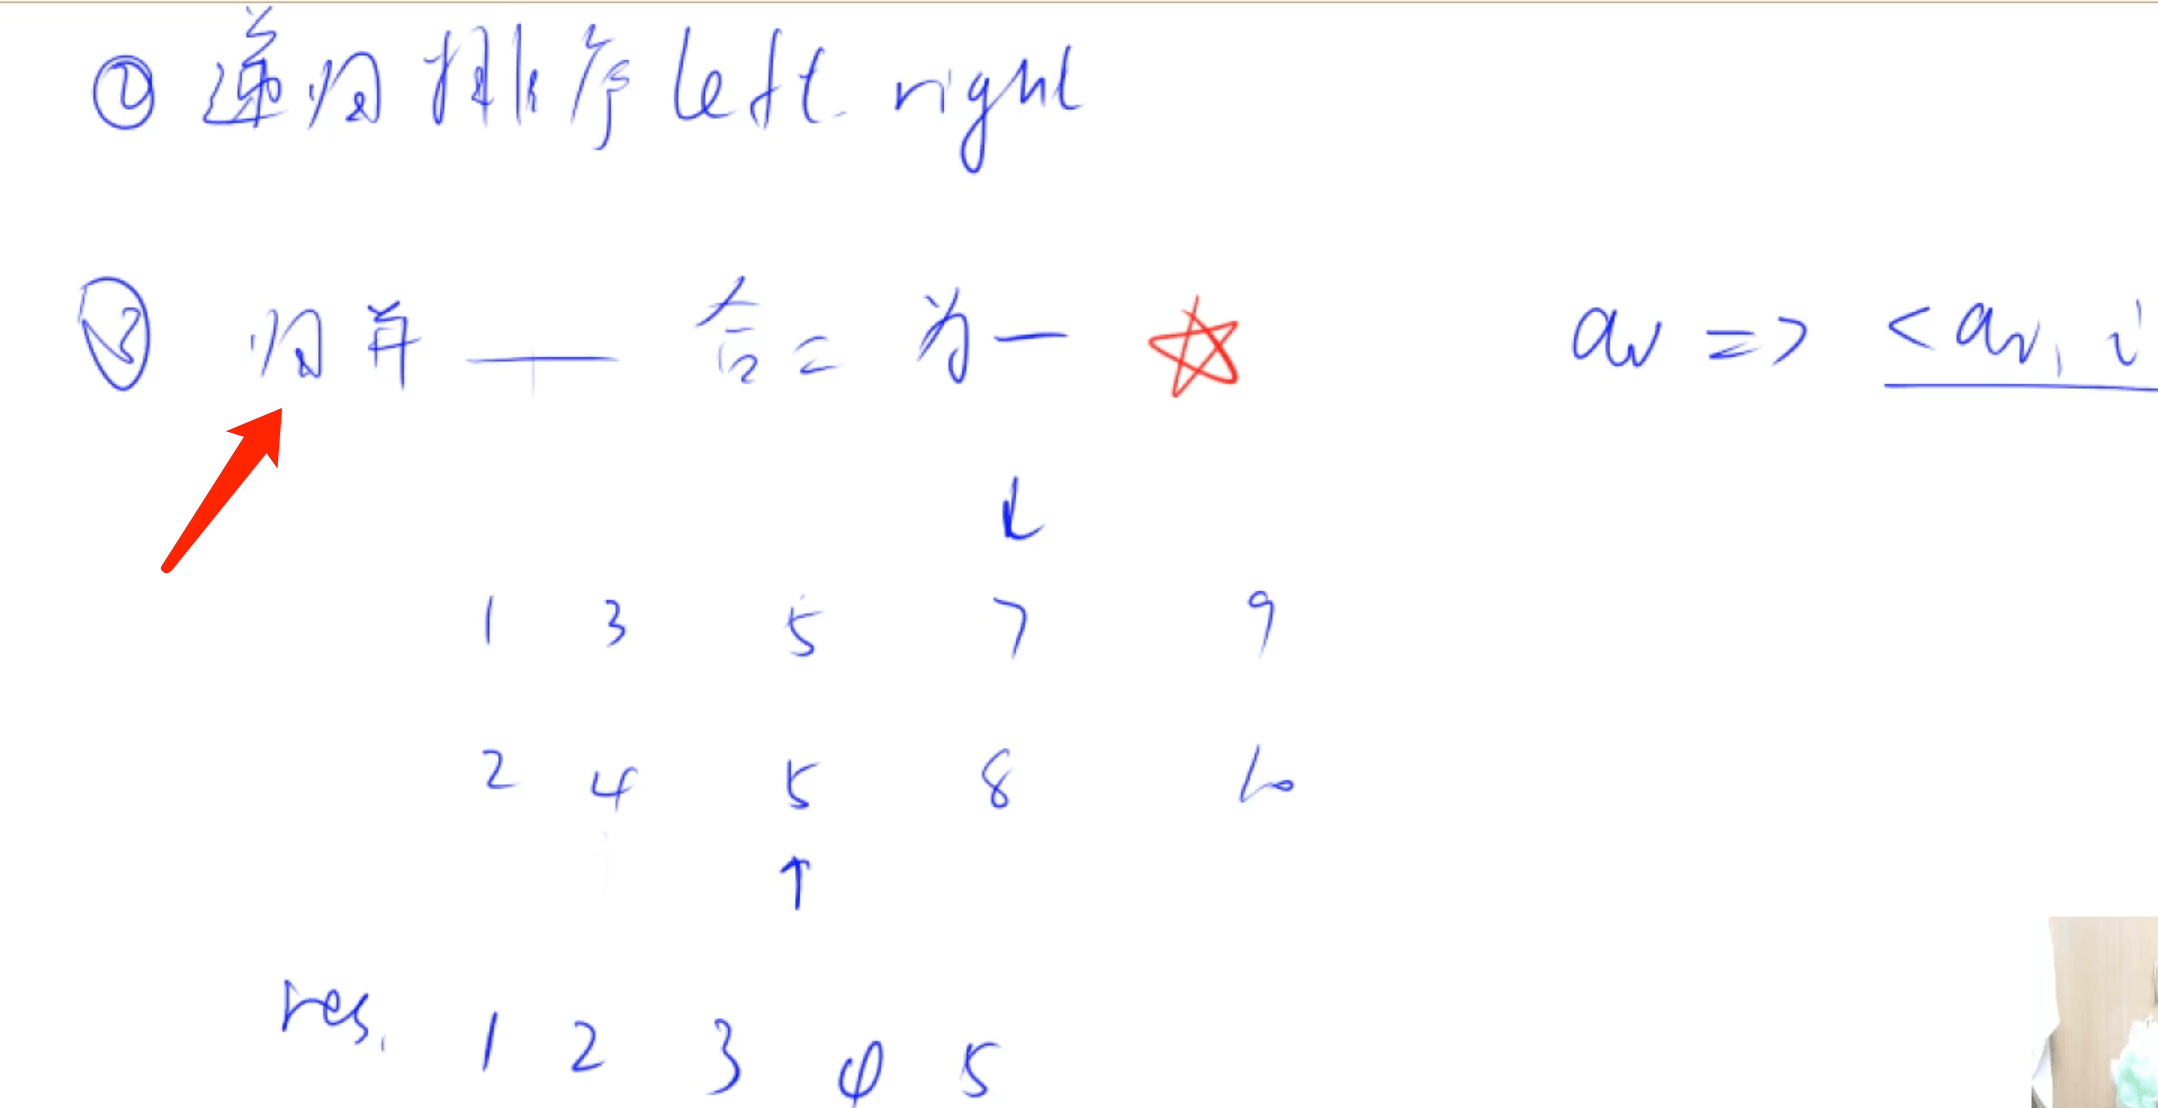 ② 递归排序 left right
③ 归并 — 合二为一 ☆
ai => <ai, i
1 3 5 7 9
2 4 5 8 10
res. 1 2 3 4 5